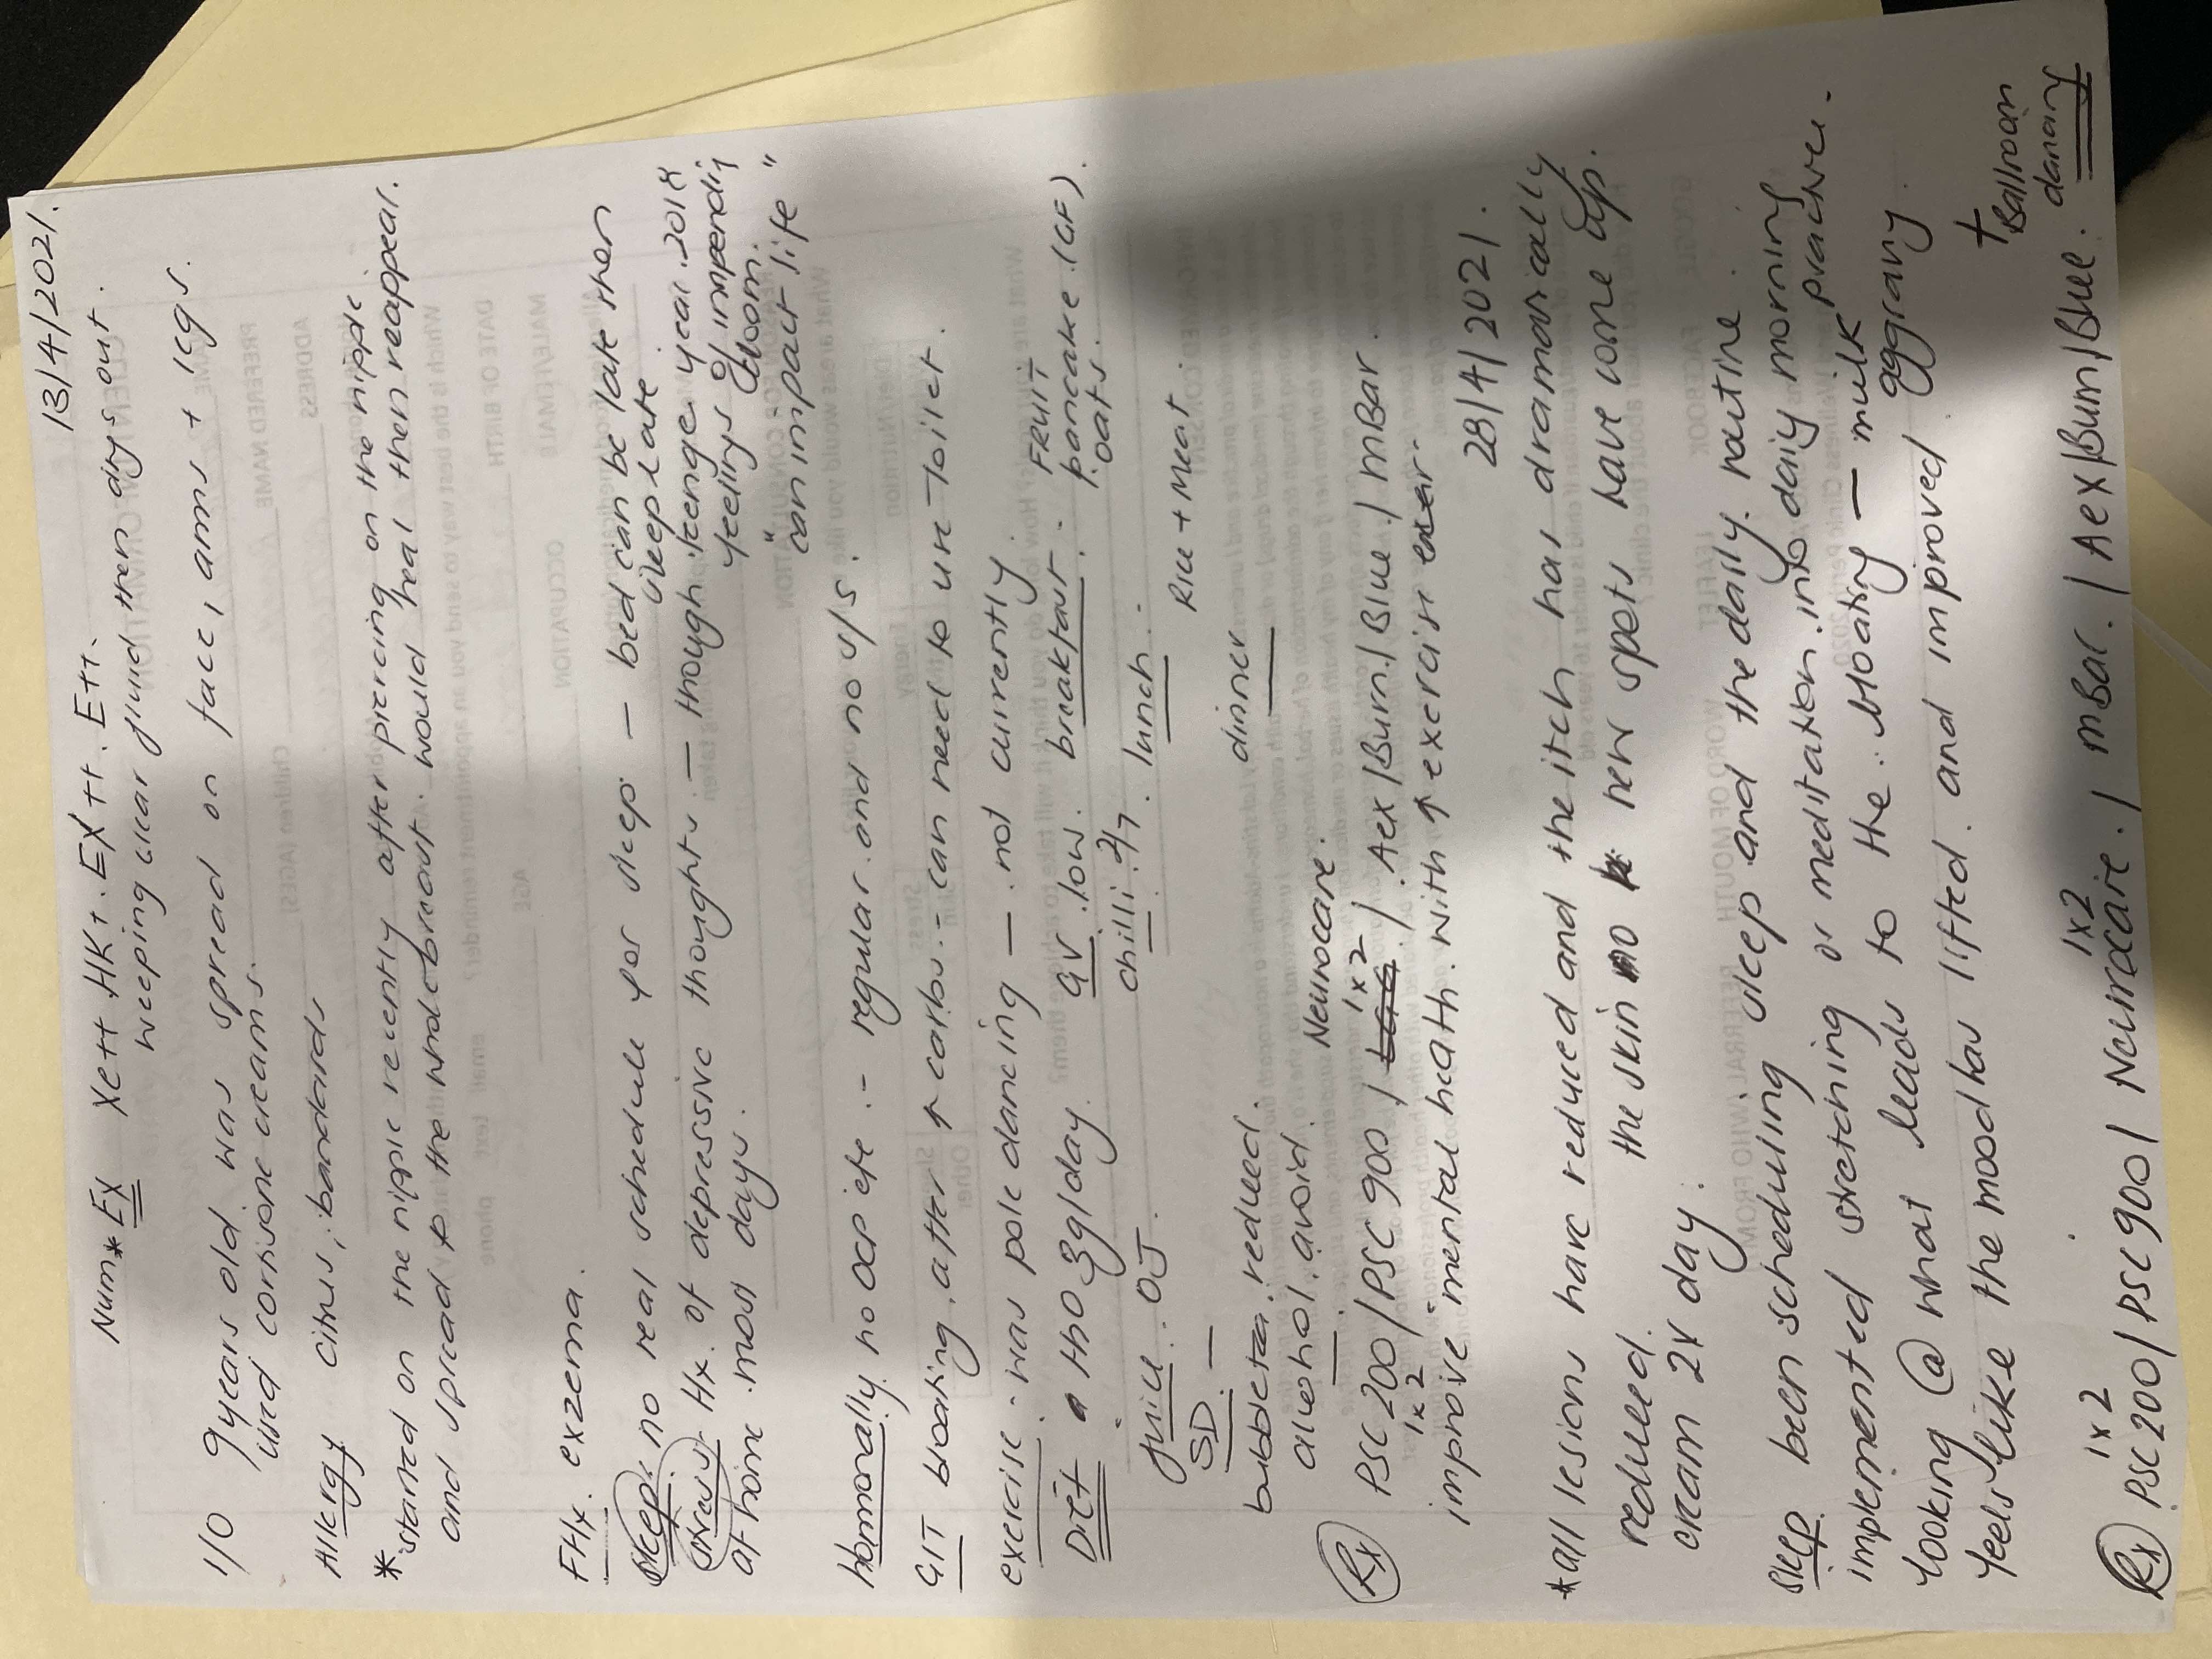 13/4/2021.
Num* Ex Xett HKt. EX tt. Ett.
weeping clear fluid then drys out.
I/O 9 years old was spread on face, arms + legs.
used cortisone creams.
Allergy citrus, bandaids
* started on the nipple recently after piercing on the nipple
and spread to the whole breast. would heal then reappear.
FHx. exzema.
Sleep: no real schedule for sleep - bed can be late then
sleep late
stress Hx. of depressive thoughts. - though teenage year. 2018
at home most days. feelings of impending
doom.
"can impact life"
hormonally no ocp etc. - regular and no u/s.
GIT bloating. after ↑ carbs. - can need to use toilet.
exercise. was pole dancing - not currently.
Diet H2O 3g/day. GV. low. breakfast. FRUIT
pancake. (GF).
oats.
juice. OJ. chilli. 2/7. lunch.
SD. - Rice + Meat.
bubbletea. reduced. dinner
alcohol. avoid. Neurocare.
Rx PSC 200/PSC 900 / 1x2 /. Aex/Bum/Blue./MBar.
1x2
improve mental health. with ↑ exercise
28/4/2021.
*all lesions have reduced and the itch has dramatically
reduced. the skin no new spots have come up.
cream 2x day.
Sleep been scheduling sleep and the daily routine.
implemented stretching or meditation into daily morning
practive.
looking @ what leads to the bloating - milk
aggrany.
feels like the mood has lifted. and improved.
+
Ballroom
dancing
1x2 1x2
Rx PSC 200/PSC 900/ Neurocare. / MBar. / Aex/Bum/Blue.